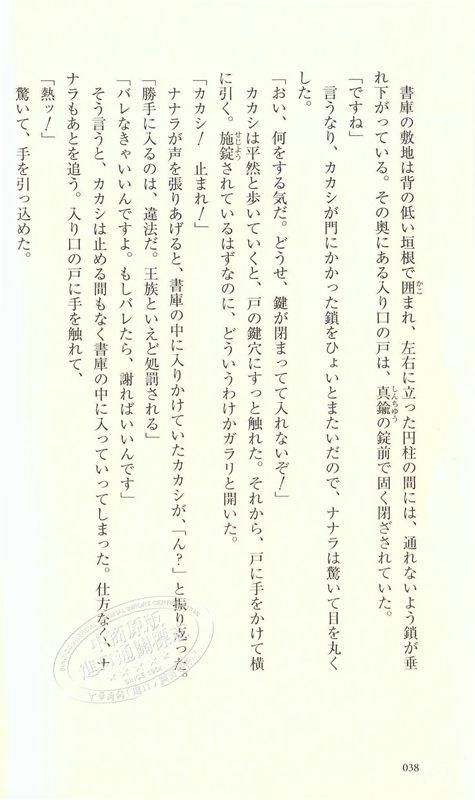 書庫の敷地は背の低い垣根で囲まれ、左右に立った円柱の間には、通れないよう鎖が垂
れ下がっている。その奥にある入り口の戸は、真鍮の錠前で固く閉ざされていた。
「ですね」
言うなり、カカシが門にかかった鎖をひょいとまたいだので、ナナラは驚いて目を丸く
した。
「おい、何をする気だ。どうせ、鍵が閉まってて入れないぞ！」
カカシは平然と歩いていくと、戸の鍵穴にすっと触れた。それから、戸に手をかけて横
に引く。施錠されているはずなのに、どういうわけかガラリと開いた。
「カカシ！　止まれ！」
ナナラが声を張りあげると、書庫の中に入りかけていたカカシが、「ん？」と振り返った。
「勝手に入るのは、違法だ。王族といえど処罰される」
「バレなきゃいいんですよ。もしバレたら、謝ればいいんです」
そう言うと、カカシは止める間もなく書庫の中に入っていってしまった。仕方なく、ナ
ナラもあとを追う。入り口の戸に手を触れて、
「熱ッ！」
驚いて、手を引っ込めた。
かこ
しんちゆう
せじよう
038